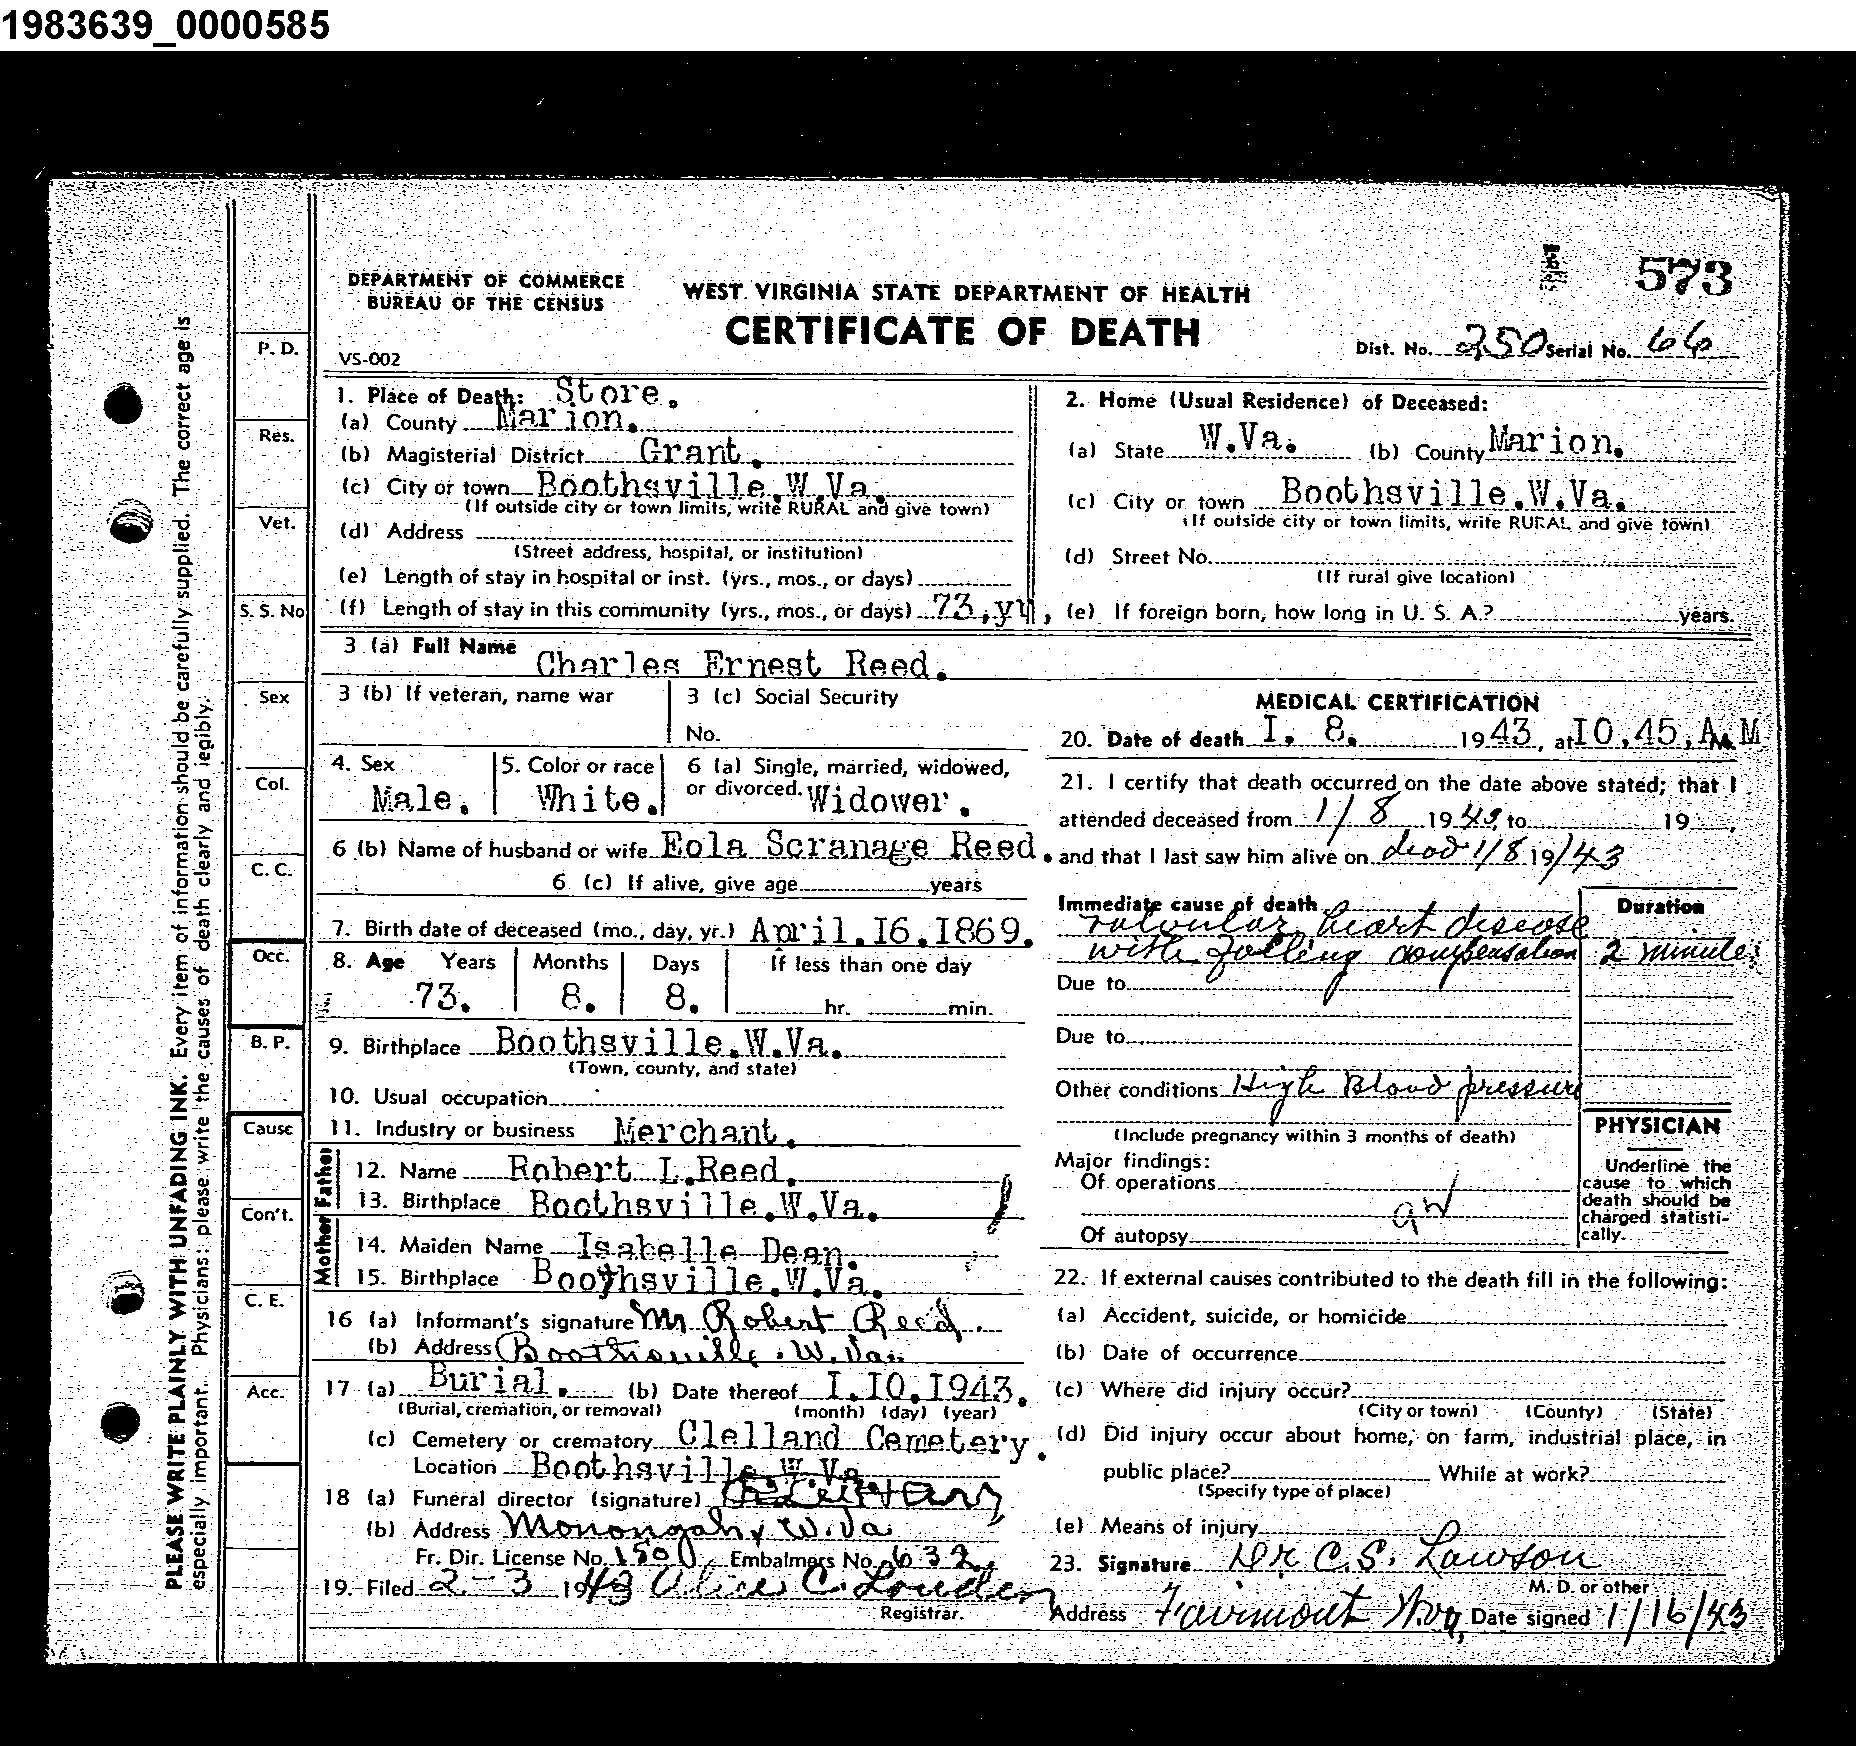 1983639_0000585
573
DEPARTMENT OF COMMERCE
BUREAU OF THE CENSUS
WEST VIRGINIA STATE DEPARTMENT OF HEALTH
CERTIFICATE OF DEATH
VS-002
Dist. No. 250 Serial No. 66
PLEASE WRITE PLAINLY WITH UNFADING INK. Every item of information should be carefully supplied. The correct age is
especially important. Physicians: please write the causes of death clearly and legibly.
P. D.
Res.
Vet.
S. S. No
Sex
Col.
C. C.
Occ.
B. P.
Cause
Con't.
C. E.
Acc.
1. Place of Death: Store.
(a) County Marion.
(b) Magisterial District Grant.
(c) City or town Boothsville.W.Va.
(If outside city or town limits, write RURAL and give town)
(d) Address
(Street address, hospital, or institution)
(e) Length of stay in hospital or inst. (yrs., mos., or days)
(f) Length of stay in this community (yrs., mos., or days) 73,yr,
2. Home (Usual Residence) of Deceased:
(a) State W.Va. (b) County Marion.
(c) City or town Boothsville.W.Va.
(If outside city or town limits, write RURAL and give town)
(d) Street No.
(If rural give location)
(e) If foreign born, how long in U. S. A.? years.
3 (a) Full Name Charles Ernest Reed.
3 (b) If veteran, name war
3 (c) Social Security
No.
4. Sex Male.
5. Color or race White.
6 (a) Single, married, widowed,
or divorced. Widower.
6 (b) Name of husband or wife Eola Scranage Reed.
6 (c) If alive, give age years
7. Birth date of deceased (mo., day, yr.) April.I6.1869.
8. Age Years Months Days If less than one day
73. 8. 8. hr. min.
9. Birthplace Boothsville.W.Va.
(Town, county, and state)
10. Usual occupation
11. Industry or business Merchant.
Father
12. Name Robert L.Reed.
13. Birthplace Boothsville.W.Va.
Mother
14. Maiden Name Isabelle Dean.
15. Birthplace Boothsville.W.Va.
16 (a) Informant's signature Mr Robert Reed.
(b) Address Boothsville. W.Va.
17 (a) Burial. (b) Date thereof I.IO.I943.
(Burial, cremation, or removal) (month) (day) (year)
(c) Cemetery or crematory Clelland Cemetery.
Location Boothsville.W.Va
18 (a) Funeral director (signature)
(b) Address Monongah, W.Va
Fr. Dir. License No. Embalmers No. 632
19. Filed 2-3 1943 Alice C. Louden
Registrar.
MEDICAL CERTIFICATION
20. Date of death I. 8. 1943, at IO,45,A.M
21. I certify that death occurred on the date above stated; that I
attended deceased from 1/8 1943, to 19 ,
and that I last saw him alive on dead 1/8 19/43
Immediate cause of death Duration
valvular heart disease
with falling compensation 2 minutes
Due to
Due to
Other conditions High Blood pressure
(Include pregnancy within 3 months of death)
Major findings:
Of operations
Of autopsy
PHYSICIAN
Underline the
cause to which
death should be
charged statisti-
cally.
22. If external causes contributed to the death fill in the following:
(a) Accident, suicide, or homicide
(b) Date of occurrence
(c) Where did injury occur?
(City or town) (County) (State)
(d) Did injury occur about home, on farm, industrial place, in
public place? While at work?
(Specify type of place)
(e) Means of injury
23. Signature Dr C.S. Lawson
M. D. or other
Address Fairmont W.Va, Date signed 1/16/43